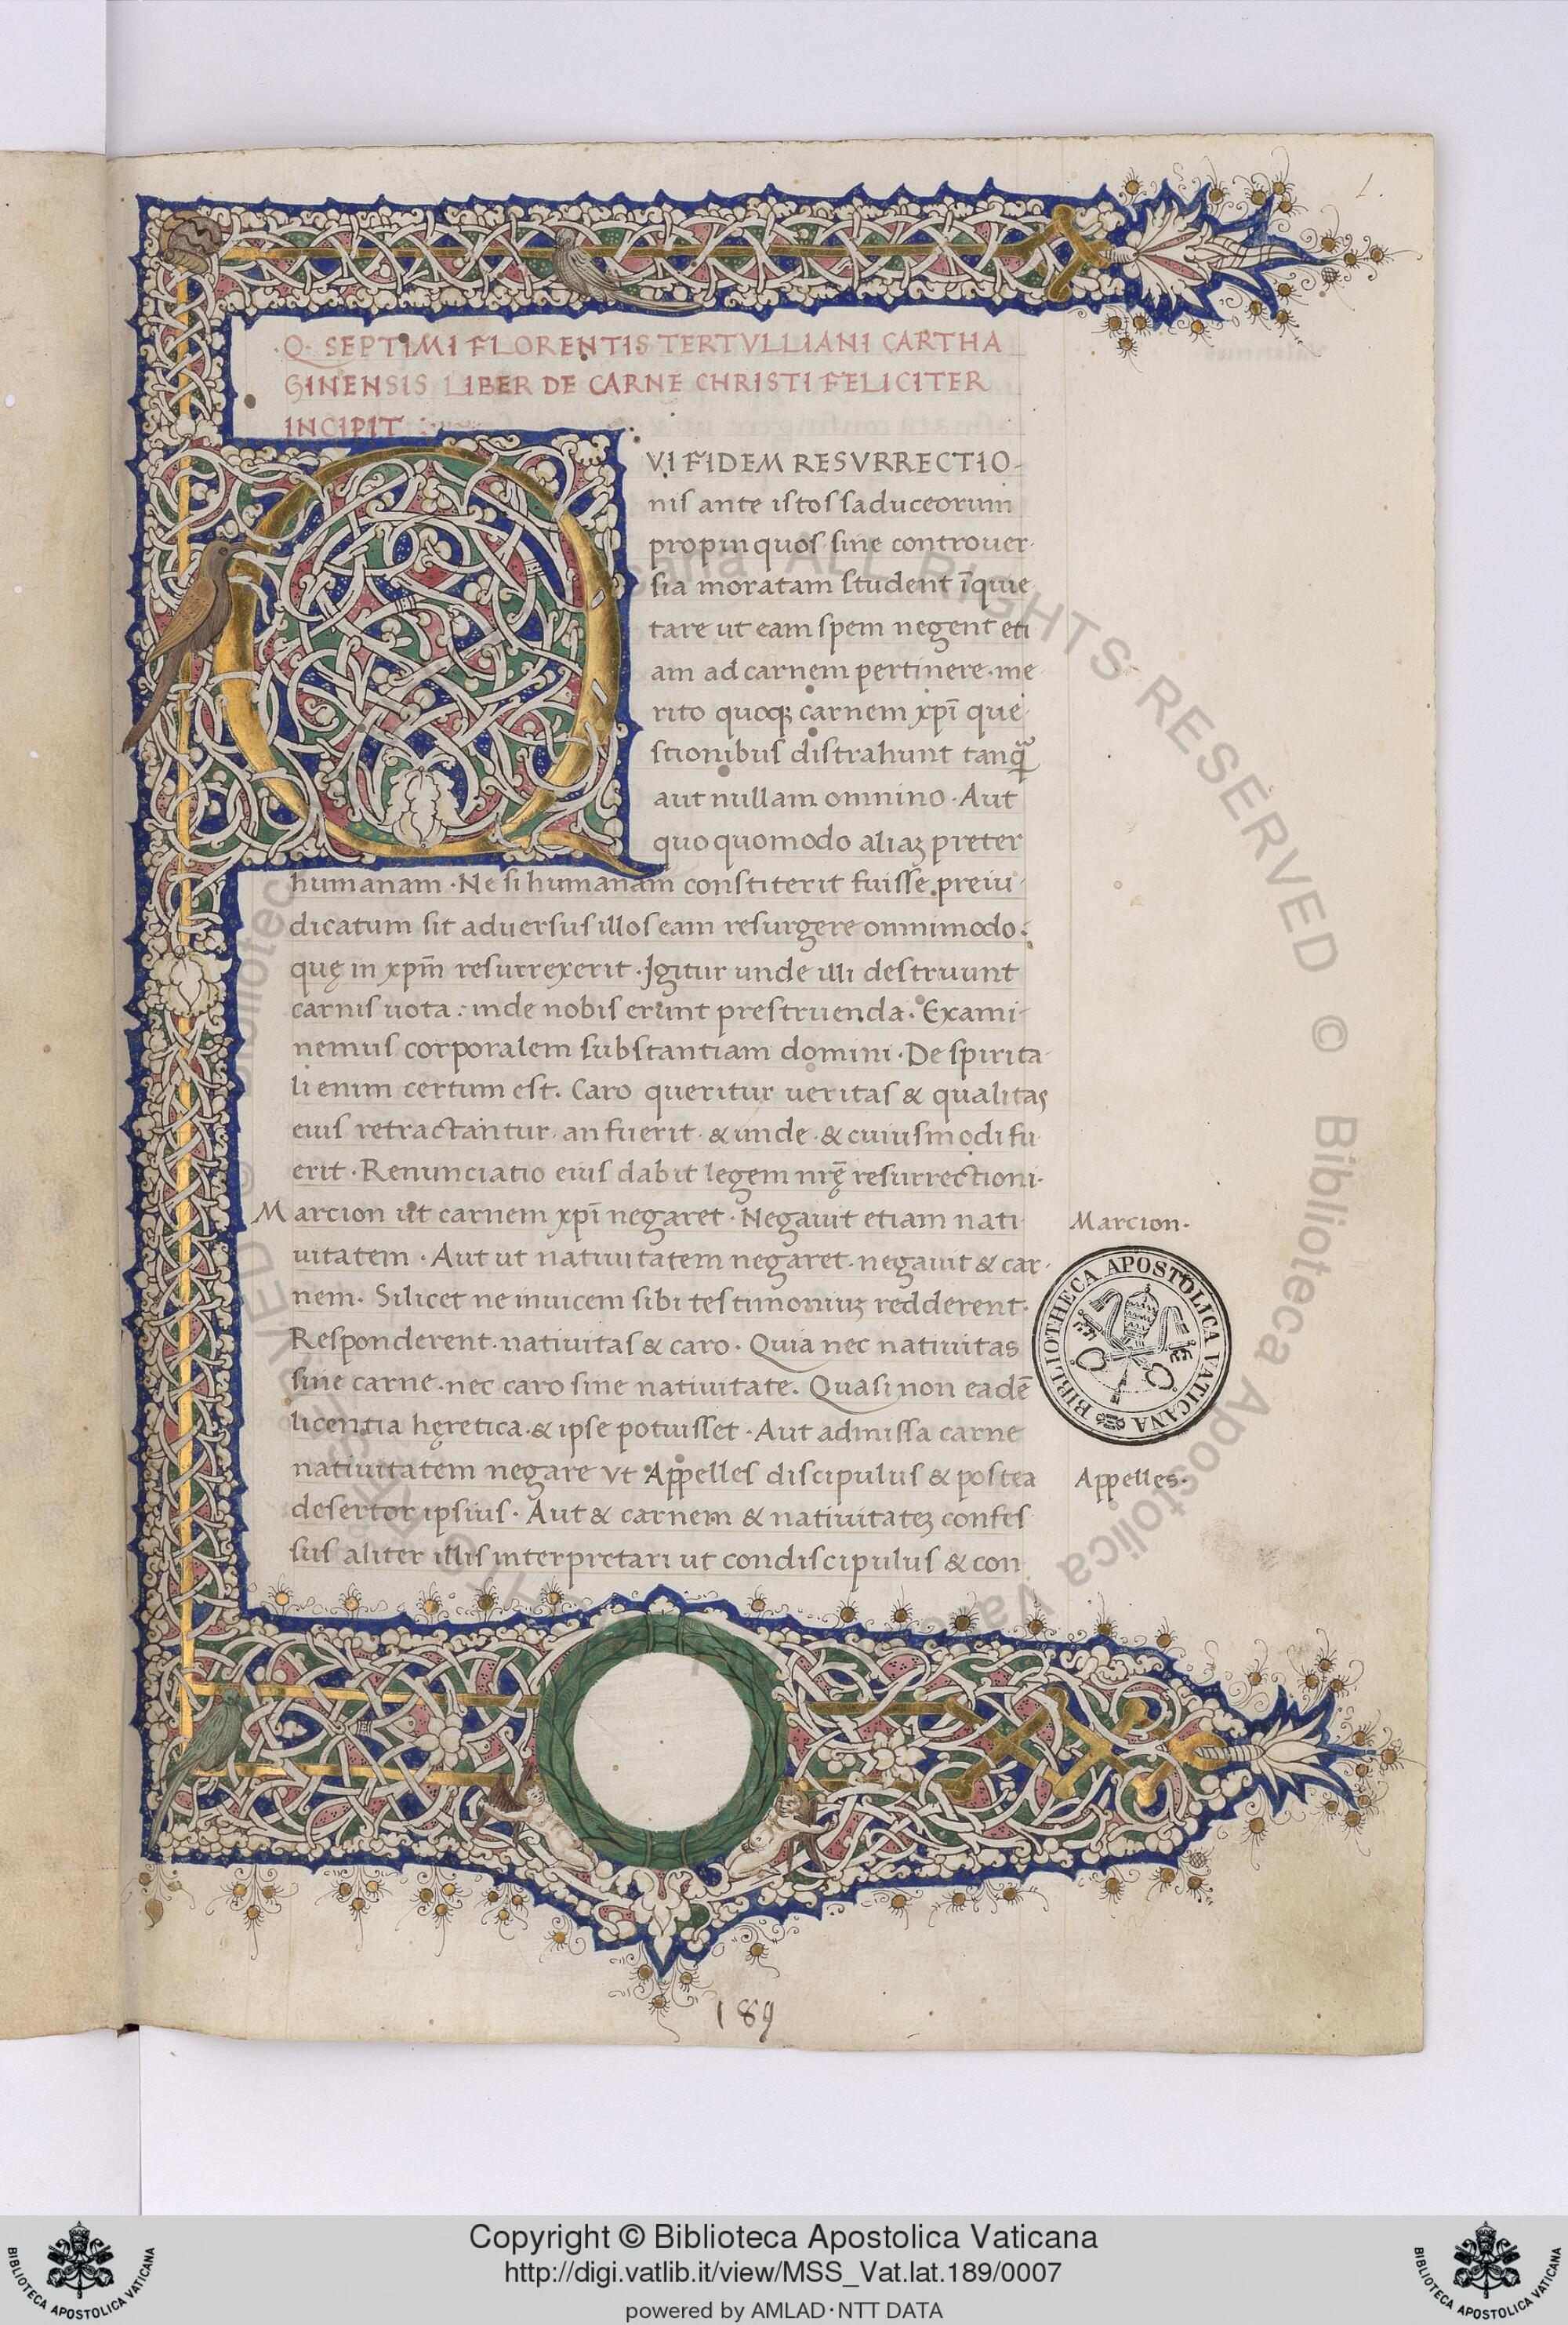 1.
·Q· SEPTIMI FLORENTIS TERTVLLIANI CARTHA
GINENSIS LIBER DE CARNE CHRISTI FELICITER
INCIPIT
QVI FIDEM RESVRRECTIO-
nis ante istos saduceorum
propinquos sine controuer-
sia moratam student īquie
tare ut eam spem negent eti
am ad carnem pertinere · me
rito quoqꝫ carnem xpī que
stionibus distrahunt tanqꝫ̄
aut nullam omnino · Aut
quoquomodo aliaꝫ preter
humanam · Ne si humanam constiterit fuisse preiu-
dicatum sit aduersus illos eam resurgere omnimodo ·
quę in xpm̄ resurrexerit · Igitur unde illi destruunt
carnis uota : inde nobis erunt prestruenda · Exami-
nemus corporalem substantiam domini · De spirita-
li enim certum est. Caro queritur ueritas & qualitas
eius retractantur · an fuerit · & unde · & cuiusmodi fu
erit · Renunciatio eius dabit legem nrę̄ resurrectioni ·
Marcion ut carnem xpī negaret · Negauit etiam nati
uitatem · Aut ut natiuitatem negaret · negauit & car-
nem · Silicet ne inuicem sibi testimoniuꝫ redderent ·
Responderent · natiuitas & caro · Quia nec natiuitas
sine carne · nec caro sine natiuitate. Quasi non eadē
licentia hęretica · & ipse potuisset · Aut admissa carne
natiuitatem negare vt Appelles discipulus & postea
desertor ipsius · Aut & carnem & natiuitateꝫ confes
sus aliter illis interpretari ut condiscipulus & con
Marcion ·
Appelles ·
BIBLIOTHECA APOSTOLICA VATICANA
189
ALL RIGHTS RESERVED © Biblioteca Apostolica Vaticana
Copyright © Biblioteca Apostolica Vaticana
http://digi.vatlib.it/view/MSS_Vat.lat.189/0007
powered by AMLAD·NTT DATA
BIBLIOTECA APOSTOLICA VATICANA
BIBLIOTECA APOSTOLICA VATICANA